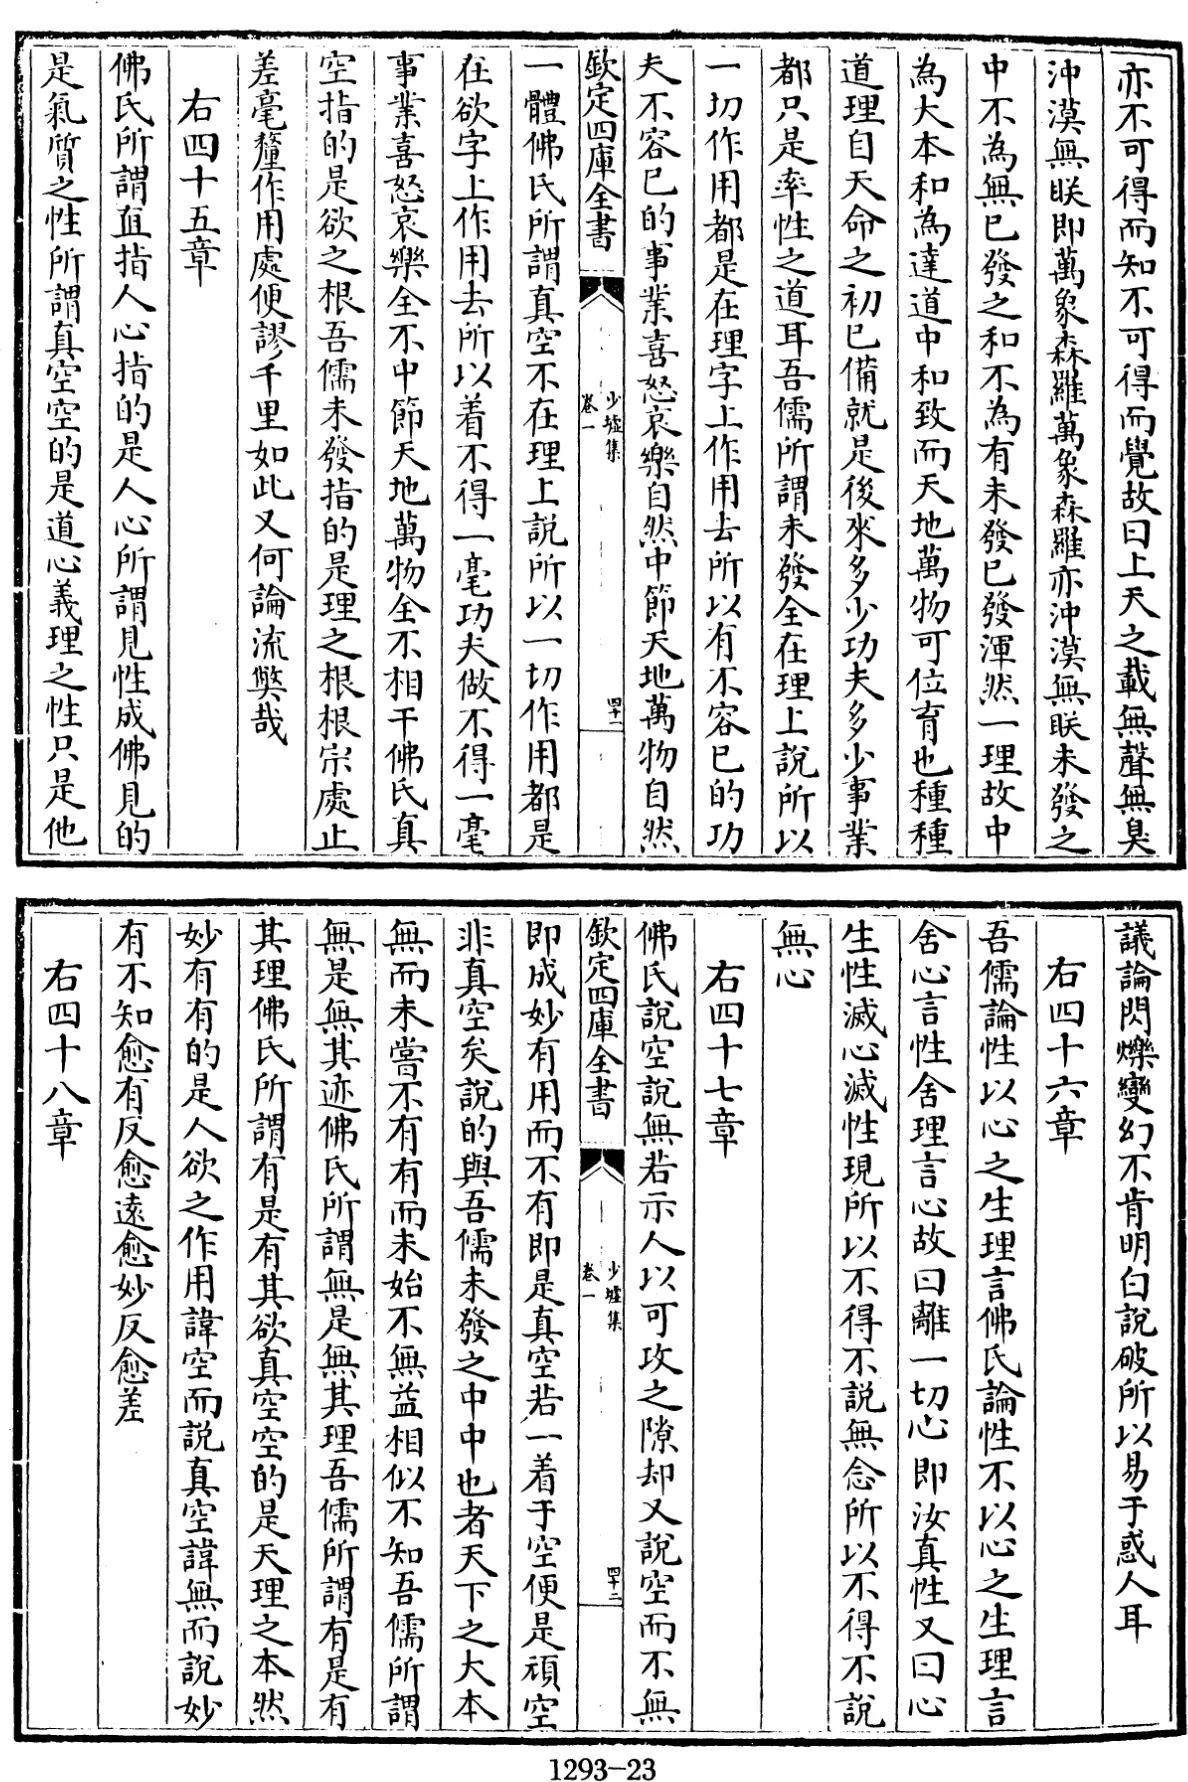 亦不可得而知不可得而覺故曰上天之載無聲無臭
沖漠無眹即萬象森羅萬象森羅亦沖漠無眹未發之
中不為無已發之和不為有未發已發渾然一理故中
為大本和為達道中和致而天地萬物可位育也種種
道理自天命之初已備就是後來多少功夫多少事業
都只是率性之道耳吾儒所謂未發全在理上說所以
一切作用都是在理字上作用去所以有不容已的功
夫不容已的事業喜怒哀樂自然中節天地萬物自然
欽定四庫全書
少墟集
卷一
四十一
一體佛氏所謂真空不在理上說所以一切作用都是
在欲字上作用去所以着不得一毫功夫做不得一毫
事業喜怒哀樂全不中節天地萬物全不相干佛氏真
空指的是欲之根吾儒未發指的是理之根根宗處止
差毫釐作用處便謬千里如此又何論流弊哉
右四十五章
佛氏所謂直指人心指的是人心所謂見性成佛見的
是氣質之性所謂真空空的是道心義理之性只是他
議論閃爍變幻不肯明白說破所以易于惑人耳
右四十六章
吾儒論性以心之生理言佛氏論性不以心之生理言
舍心言性舍理言心故曰離一切心即汝真性又曰心
生性滅心滅性現所以不得不說無念所以不得不說
無心
右四十七章
佛氏說空說無若示人以可攻之隙却又說空而不無
欽定四庫全書
少墟集
卷一
四十二
即成妙有用而不有即是真空若一着于空便是頑空
非真空矣說的與吾儒未發之中中也者天下之大本
無而未嘗不有有而未始不無益相似不知吾儒所謂
無是無其迹佛氏所謂無是無其理吾儒所謂有是有
其理佛氏所謂有是有其欲真空空的是天理之本然
妙有有的是人欲之作用諱空而說真空諱無而說妙
有不知愈有反愈遠愈妙反愈差
右四十八章
1293-23